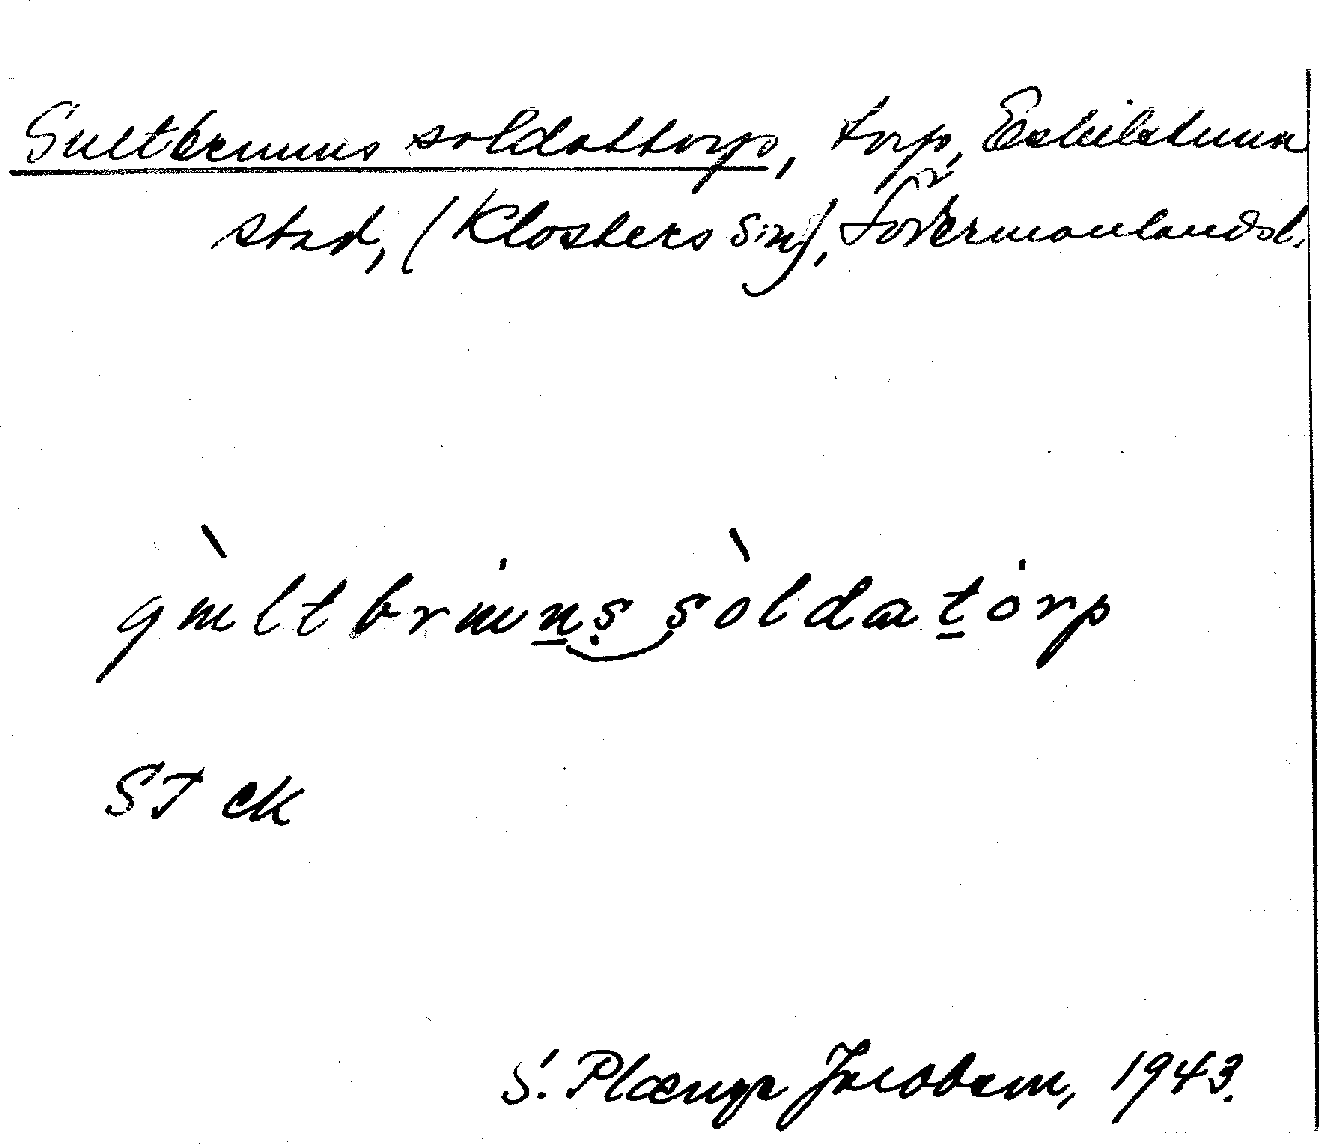 Gultbrunns soldattorp, torp, Eskilstuna
stad, (Klosters sn), Södermanlands l.
gultbruns soldatorp
ST ck
S. Plænge Jacobson, 1943.